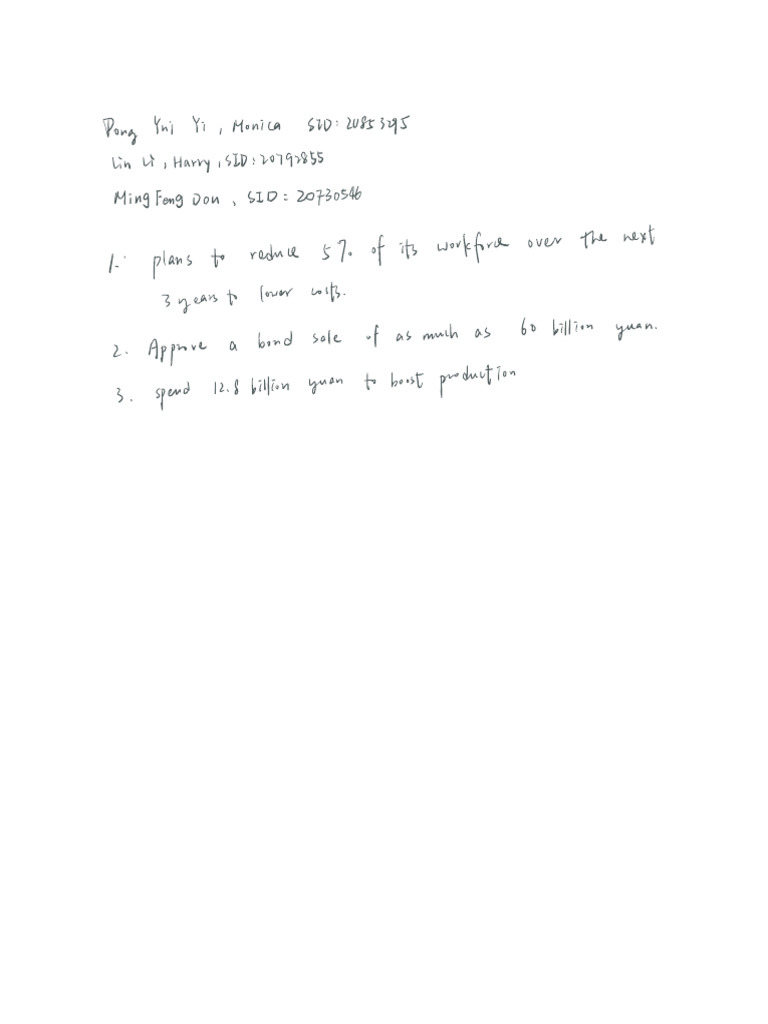 Pong Yui Yi, Monica SID: 20853295
Lin Li, Harry, SID: 20792855
Ming Feng Don, SID: 20730546
1. plans to reduce 5% of its workforce over the next
3 years to lower costs.
2. Approve a bond sale of as much as 60 billion yuan.
3. spend 12.8 billion yuan to boost production